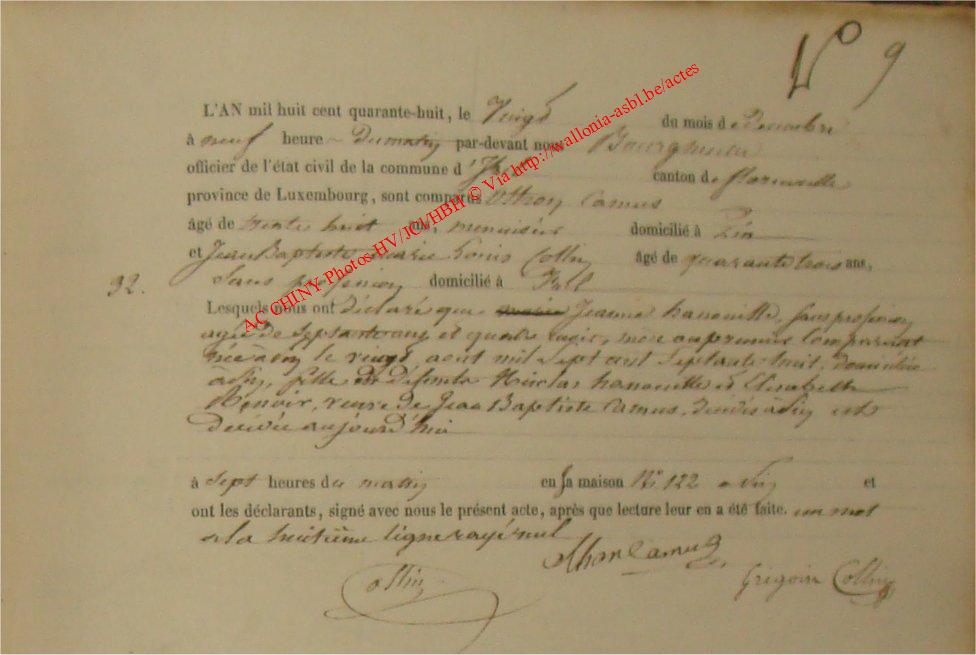 No 9
L'AN mil huit cent quarante-huit, le Vingt du mois de Decembre
à neuf heure du matin par-devant nous Bourgmestre
officier de l'état civil de la commune d' canton de florenville
province de Luxembourg, sont comparus Othon Camus
âgé de trente huit ans, menuisier domicilié à
et Jean Baptiste marie Louis Collin âgé de quarante trois ans,
32. Sans profession domicilié à
Lesquels nous ont déclaré que Jeanne hanouille, sans profession
agée de Septante ans et quatre mois, mère au premier Comparant
née à le vingt aout mil Sept cent Septante huit, domiciliée
à fille de défunts Nicolas hanouille et Elisabeth
Renoir, veuve de Jean Baptiste Camus, décédé à est
décédée aujourd'hui
à Sept heures du matin en sa maison No 122 a et
ont les déclarants, signé avec nous le présent acte, après que lecture leur en a été faite. un mot
a la huitième ligne rayé nul
Othon Camus
Collin
Grégoire Collin
AC CHINY-Photos-HV/JCl/HBH © Via http://wallonia-asbl.be/actes